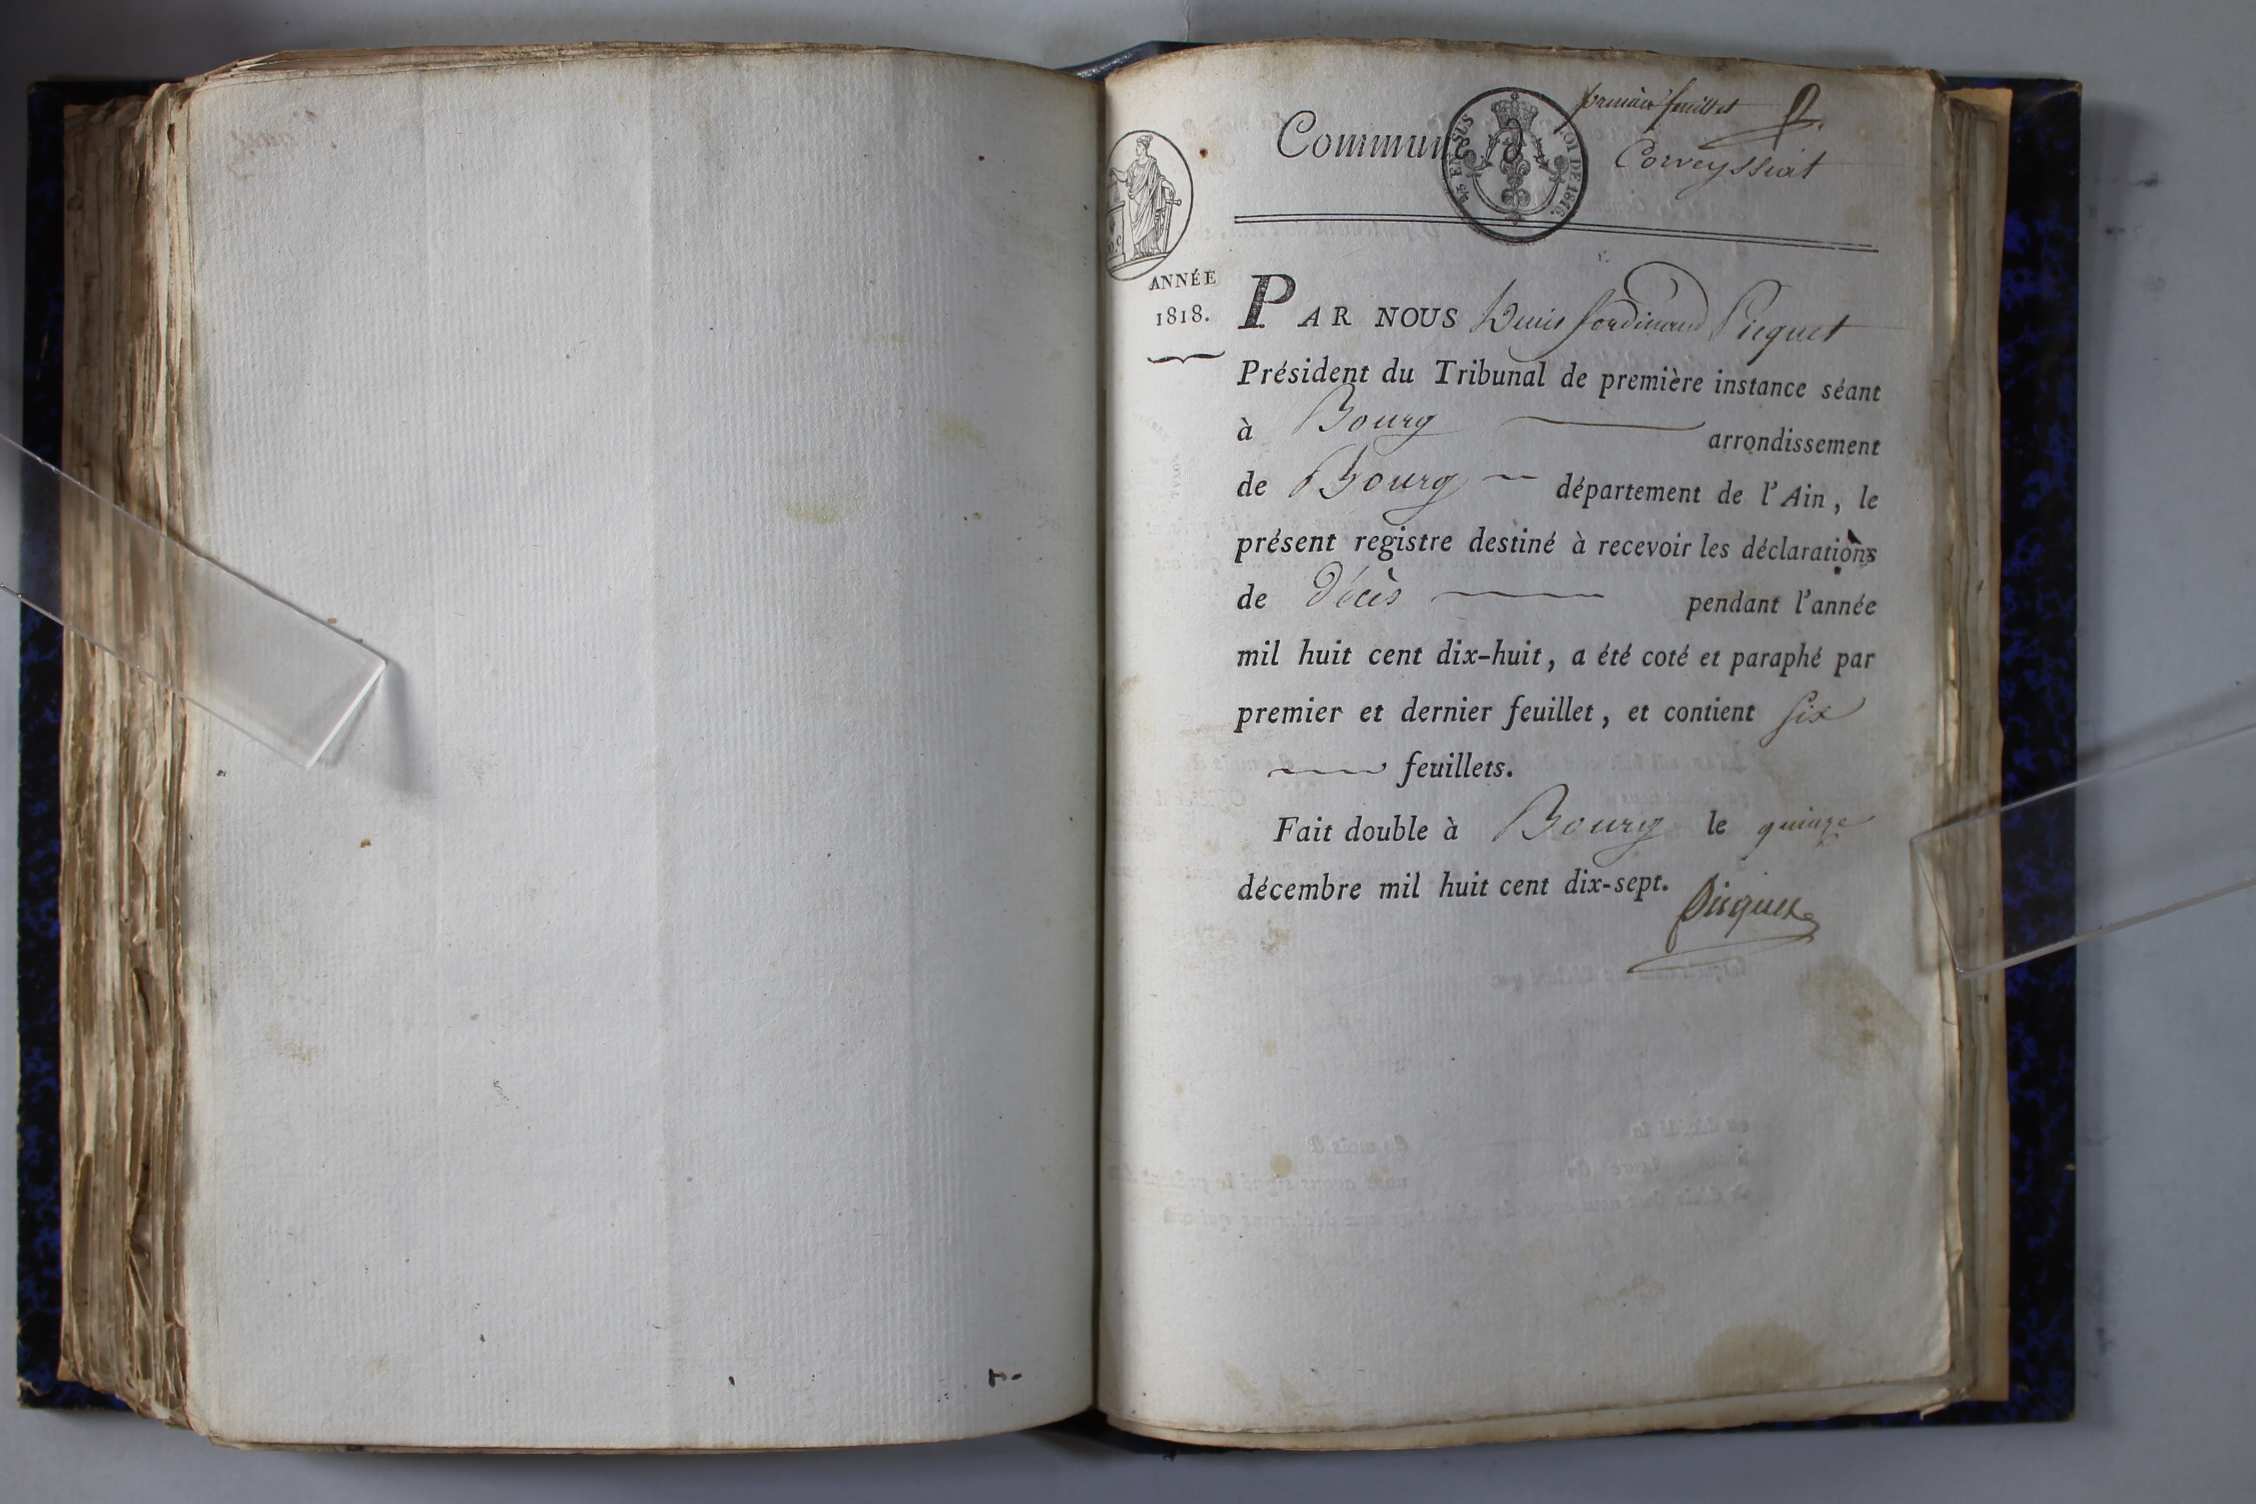 premier feuillet
Commune d
Corveyssiat
25 EN SUS
LOI DE 1816.
ANNÉE
1818.
PAR NOUS Denis ferdinand Picquet
Président du Tribunal de première instance séant
à Bourg arrondissement
de Bourg département de l'Ain, le
présent registre destiné à recevoir les déclarations
de décès pendant l'année
mil huit cent dix-huit, a été coté et paraphé par
premier et dernier feuillet, et contient six
feuillets.
Fait double à Bourg le quinze
décembre mil huit cent dix-sept.
Picquet